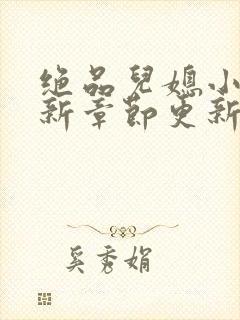 绝品兒媳小
新章節更新
奚秀娟